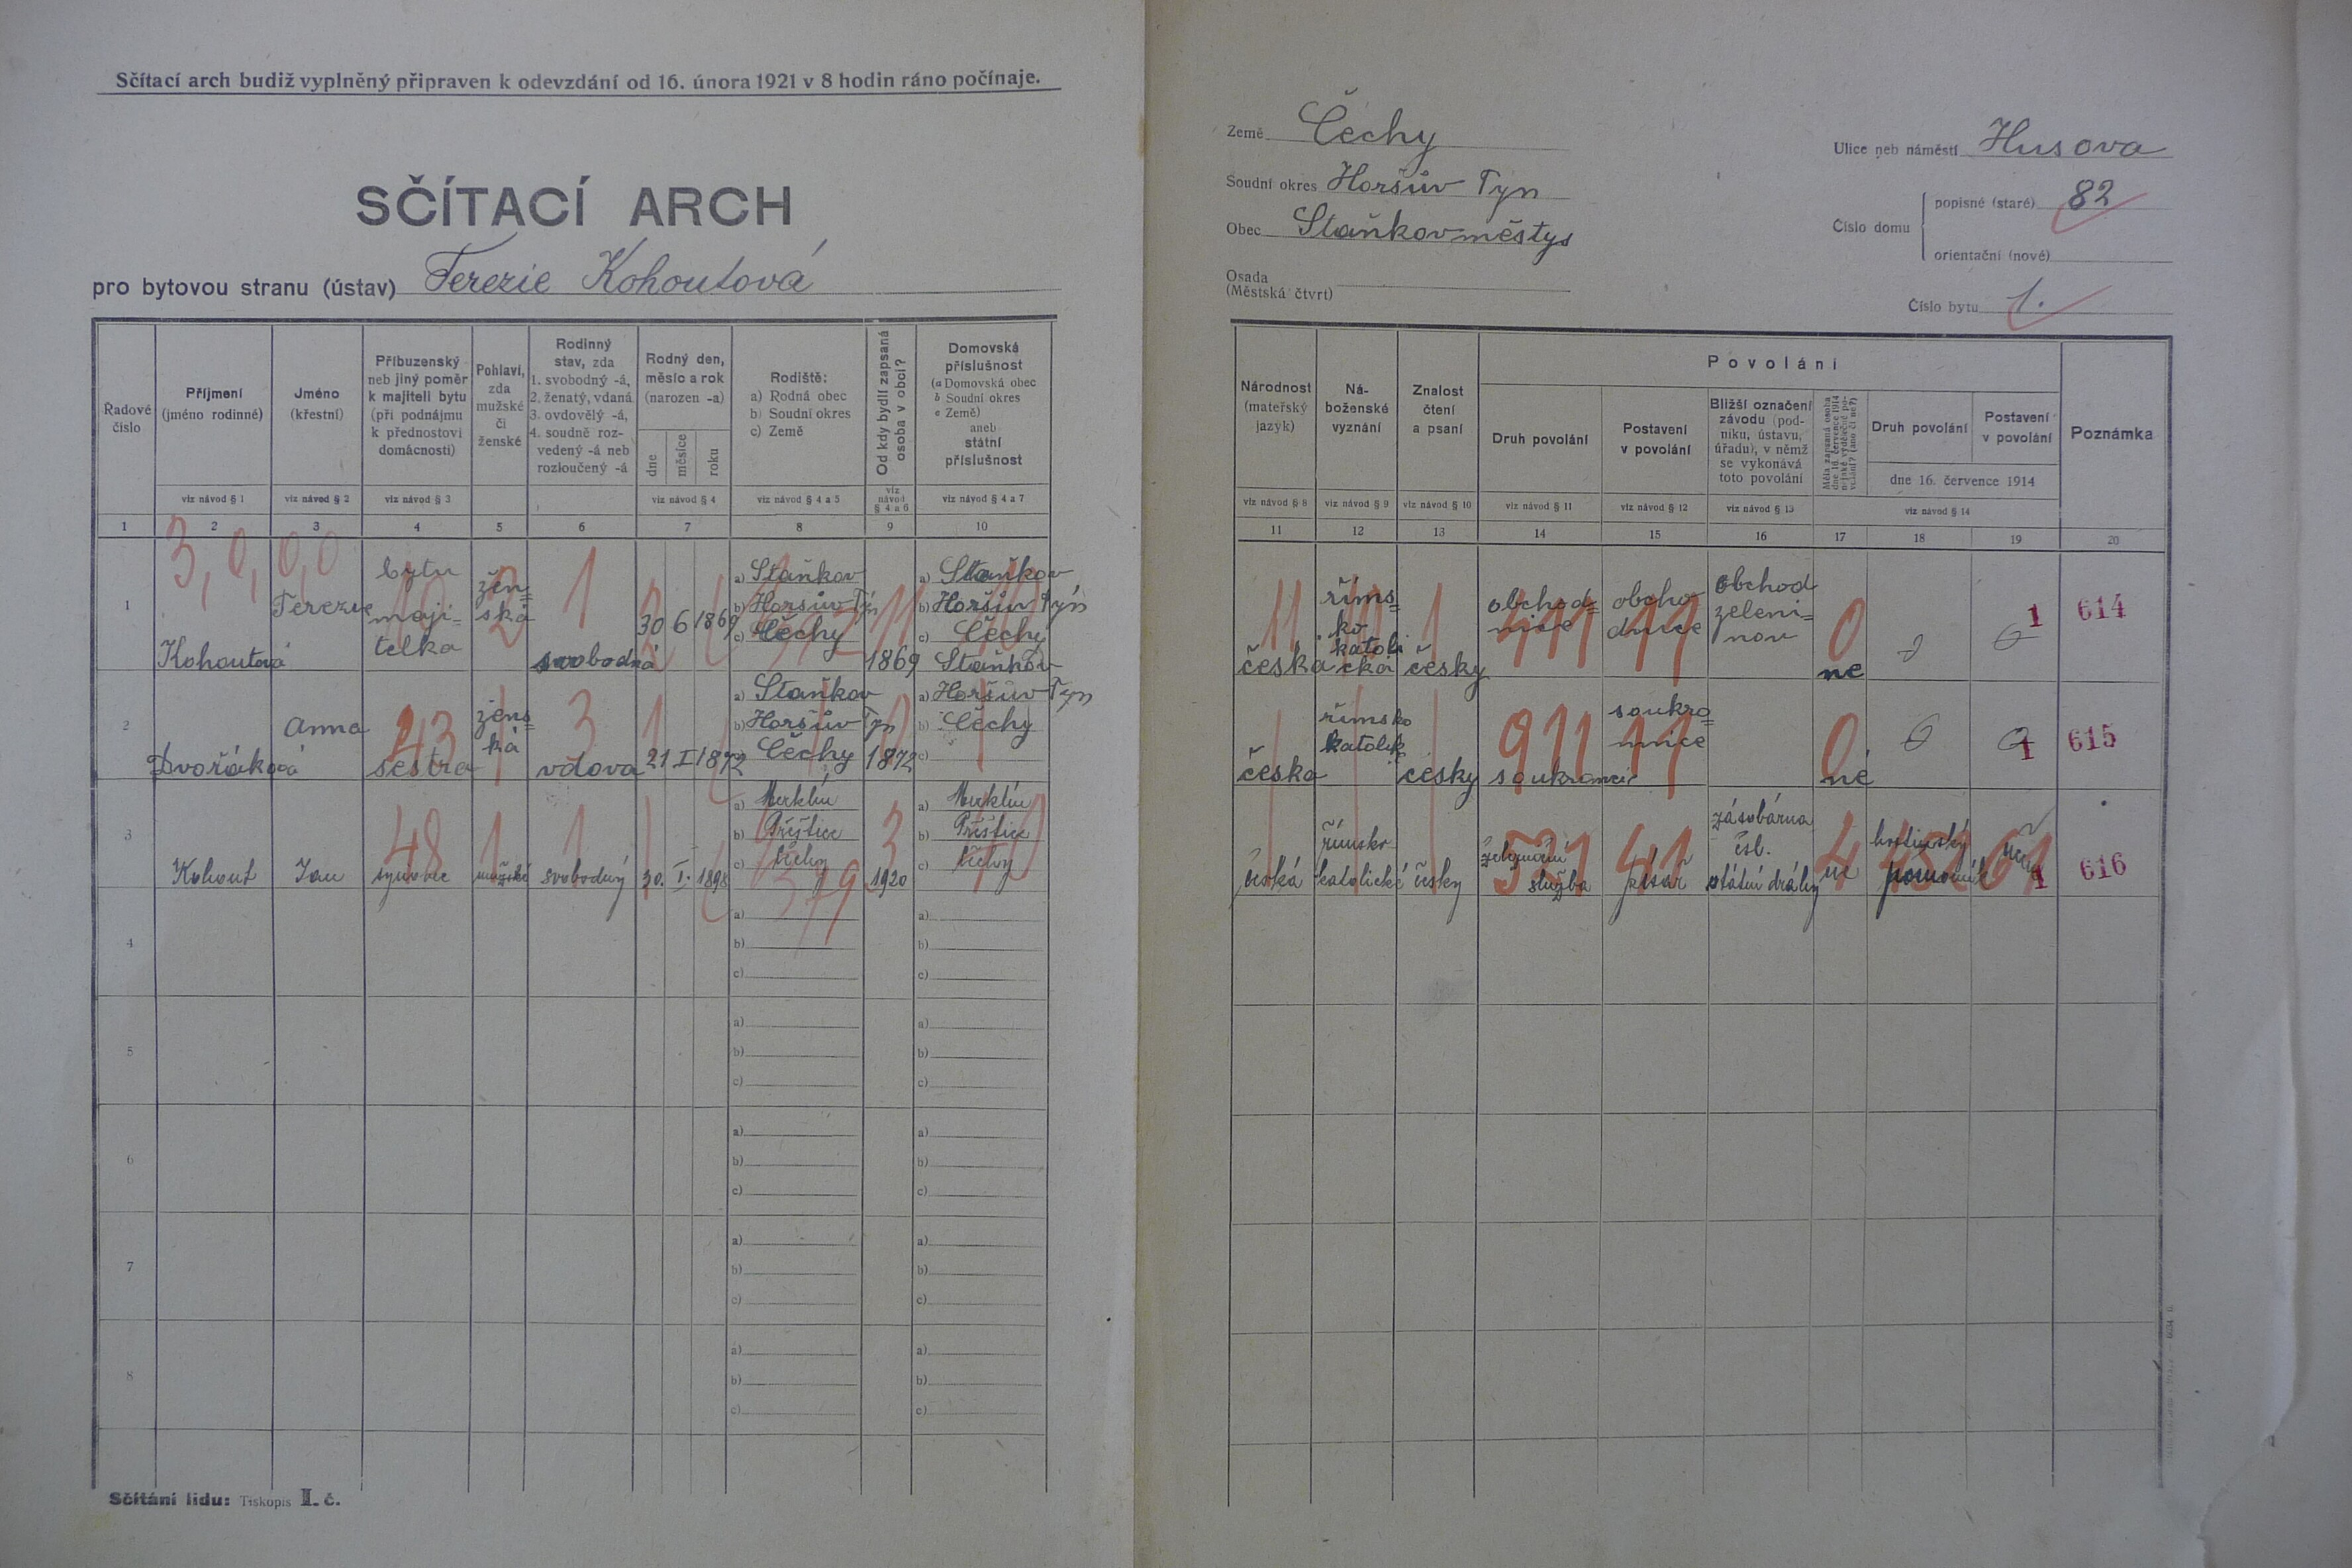 Sčítací arch budiž vyplněný připraven k odevzdání od 16. února 1921 v 8 hodin ráno počínaje.
SČÍTACÍ ARCH
pro bytovou stranu (ústav) Terezie Kohoutová
Řadové číslo
Příjmení
(jméno rodinné)
Jméno
(křestní)
Příbuzenský
neb jiný poměr
k majiteli bytu
(při podnájmu
k přednostovi
domácnosti)
Pohlaví,
zda
mužské
či
ženské
Rodinný
stav, zda
1. svobodný -á,
2. ženatý, vdaná
3. ovdovělý -á,
4. soudně roz-
vedený -á neb
rozloučený -á
Rodný den,
měsíc a rok
(narozen -a)
dne
měsíce
roku
Rodiště:
a) Rodná obec
b) Soudní okres
c) Země
Od kdy bydlí zapsaná
osoba v obci?
Domovská
příslušnost
(a Domovská obec
b Soudní okres
c Země)
aneb
státní
příslušnost
viz návod § 1
viz návod § 2
viz návod § 3
viz návod § 4
viz návod § 4 a 5
viz
návod
§ 4 a 6
viz návod § 4 a 7
1 2 3 4 5 6 7 8 9 10
3, 0, 0, 0
1
Kohoutová
Terezie
bytu
maji=
telka
žen=
ská
svobodná
30 6 1869
a) Staňkov
b) Horšův Týn
c) Čechy
1869
a) Staňkov
b) Horšův Týn
c) Čechy
Staňkov
2
Dvořáková
Anna
sestra
žens=
ká
vdova
21 I 1872
a) Staňkov
b) Horšův Týn
Čechy
1872
a) Horšův Týn
b) Čechy
c)
3
Kohout
Jan
synovec
mužské
svobodný
30. I. 1898
a) Merklín
b) Přeštice
c) Čechy
1920
a) Merklín
b) Přeštice
c) Čechy
4
a)
b)
c)
a)
b)
c)
5
a)
b)
c)
a)
b)
c)
6
a)
b)
c)
a)
b)
c)
7
a)
b)
c)
a)
b)
c)
8
a)
b)
c)
a)
b)
c)
Sčítání lidu: Tiskopis I. č.
Země Čechy
Soudní okres Horšův Týn
Obec Staňkov městys
Osada
(Městská čtvrt)
Ulice neb náměstí Husova
Číslo domu
popisné (staré) 82
orientační (nové)
Číslo bytu 1.
Národnost
(mateřský
jazyk)
Ná-
boženské
vyznání
Znalost
čtení
a psaní
Povolání
Druh povolání
Postavení
v povolání
Bližší označení
závodu (pod-
niku, ústavu,
úřadu), v němž
se vykonává
toto povolání
Měla zapsaná osoba
dne 16. července 1914
nějaké výdělečné po-
volání? (ano či ne?)
Druh povolání
Postavení
v povolání
dne 16. července 1914
Poznámka
viz návod § 8
viz návod § 9
viz návod § 10
viz návod § 11
viz návod § 12
viz návod § 13
viz návod § 14
11 12 13 14 15 16 17 18 19 20
česka
říms=
ko
katoli
cká
česky
obchod=
nice
411
obcho
dnice
11
obchod
zeleni=
nou
0
ne
1
614
česka
římsko
katolick
česky
911
soukro=
mnice
11
0
ne
1
615
česká
římsko
katolické
česky
železniční
služba
531
písař
41
zásobárna
čsl.
státní dráhy
4
ne
hostinský
pomocník
1
616